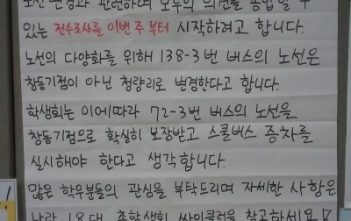 노선 변경과 관련하여 모두의 의견을 종합할 수
있는 전수조사를 이번 주 부터 시작하려고 합니다.
노선의 다양화를 위해 138-3번 버스의 노선은
창동기점이 아닌 청량리로 변경한다고 합니다.
학생회는 이에따라 72-3번 버스의 노선을
창동기점으로 확실히 보장받고 스쿨버스 증차를
실시해야 한다고 생각합니다.
많은 학우분들의 관심을 부탁드리며 자세한 사항은
18대 총학생회 싸이클럽을 참고하세요